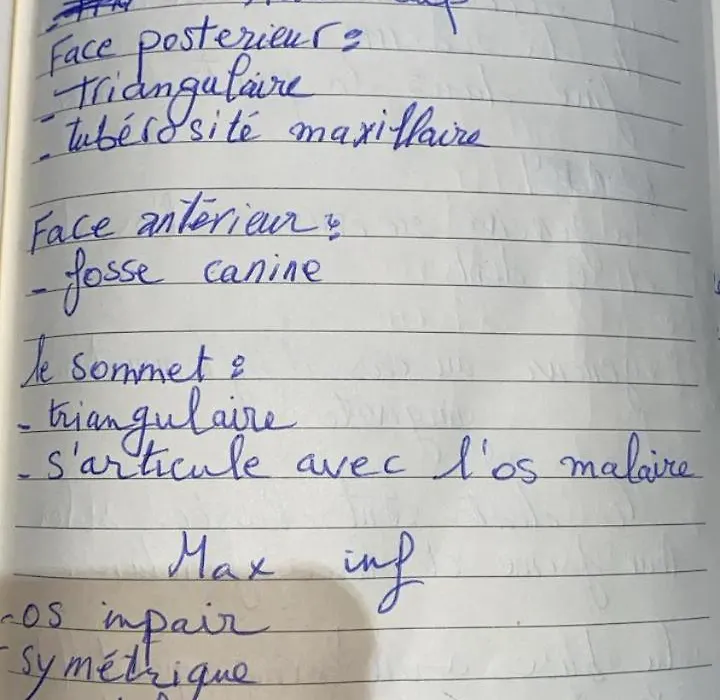 Face posterieur :
- triangulaire
- tubérosité maxillaire
Face antérieur :
- fosse canine
le sommet :
- triangulaire
- s'articule avec l'os malaire
Max inf
- os impair
- symétrique